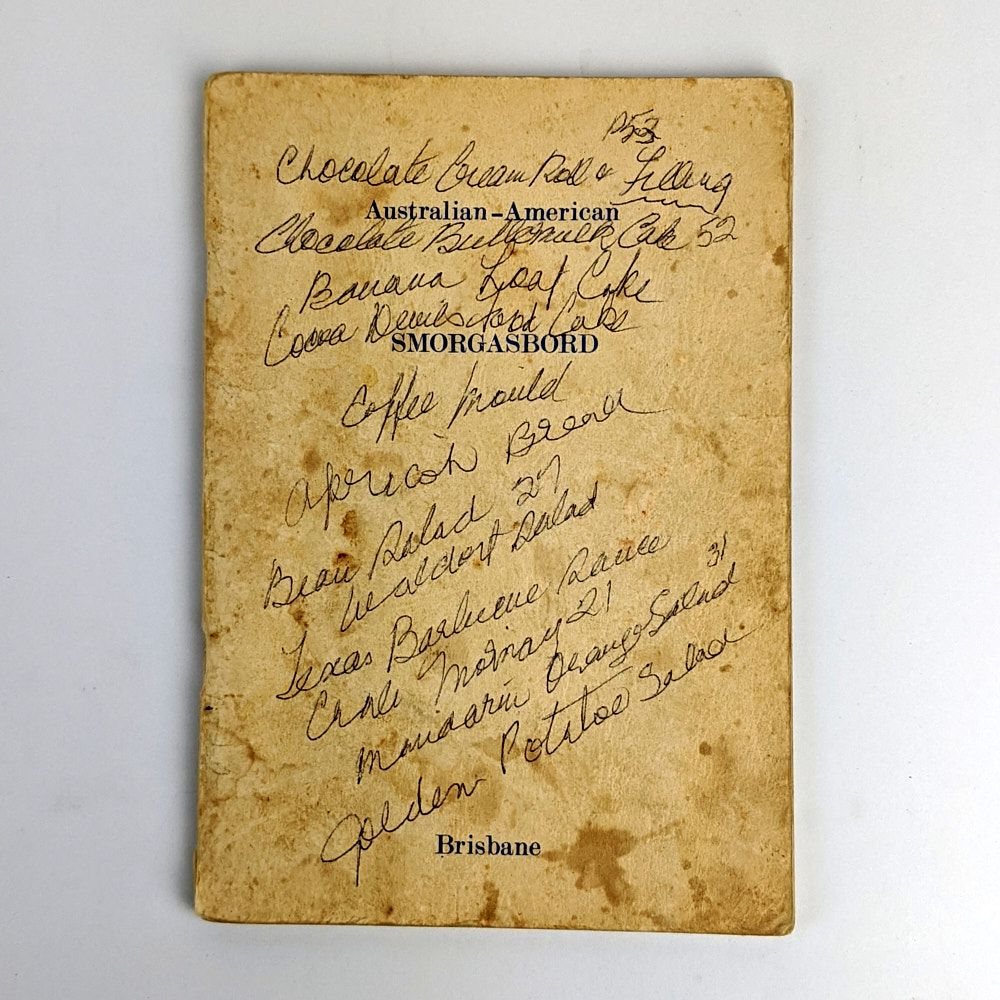 p52
Chocolate Cream Roll & Filling
Australian-American
Chocolate Buttermilk Cake 52
Banana Loaf Cake
Cocoa Devilsfood Cake
SMORGASBORD
Coffee Mould
Apricot Bread
Bean Salad 27
Waldorf Salad
Texas Barbecue Sauce
Crab Mornay 21
31
Mandarin Orange Salad
Golden Potatoe Salad
Brisbane